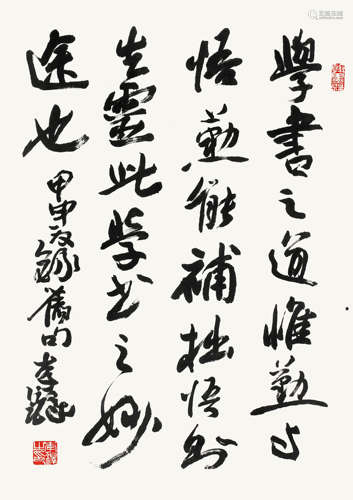 學書之道惟勤与
悟勤能補拙悟则
生靈此学书之妙
途也
甲申錄舊句李鐸